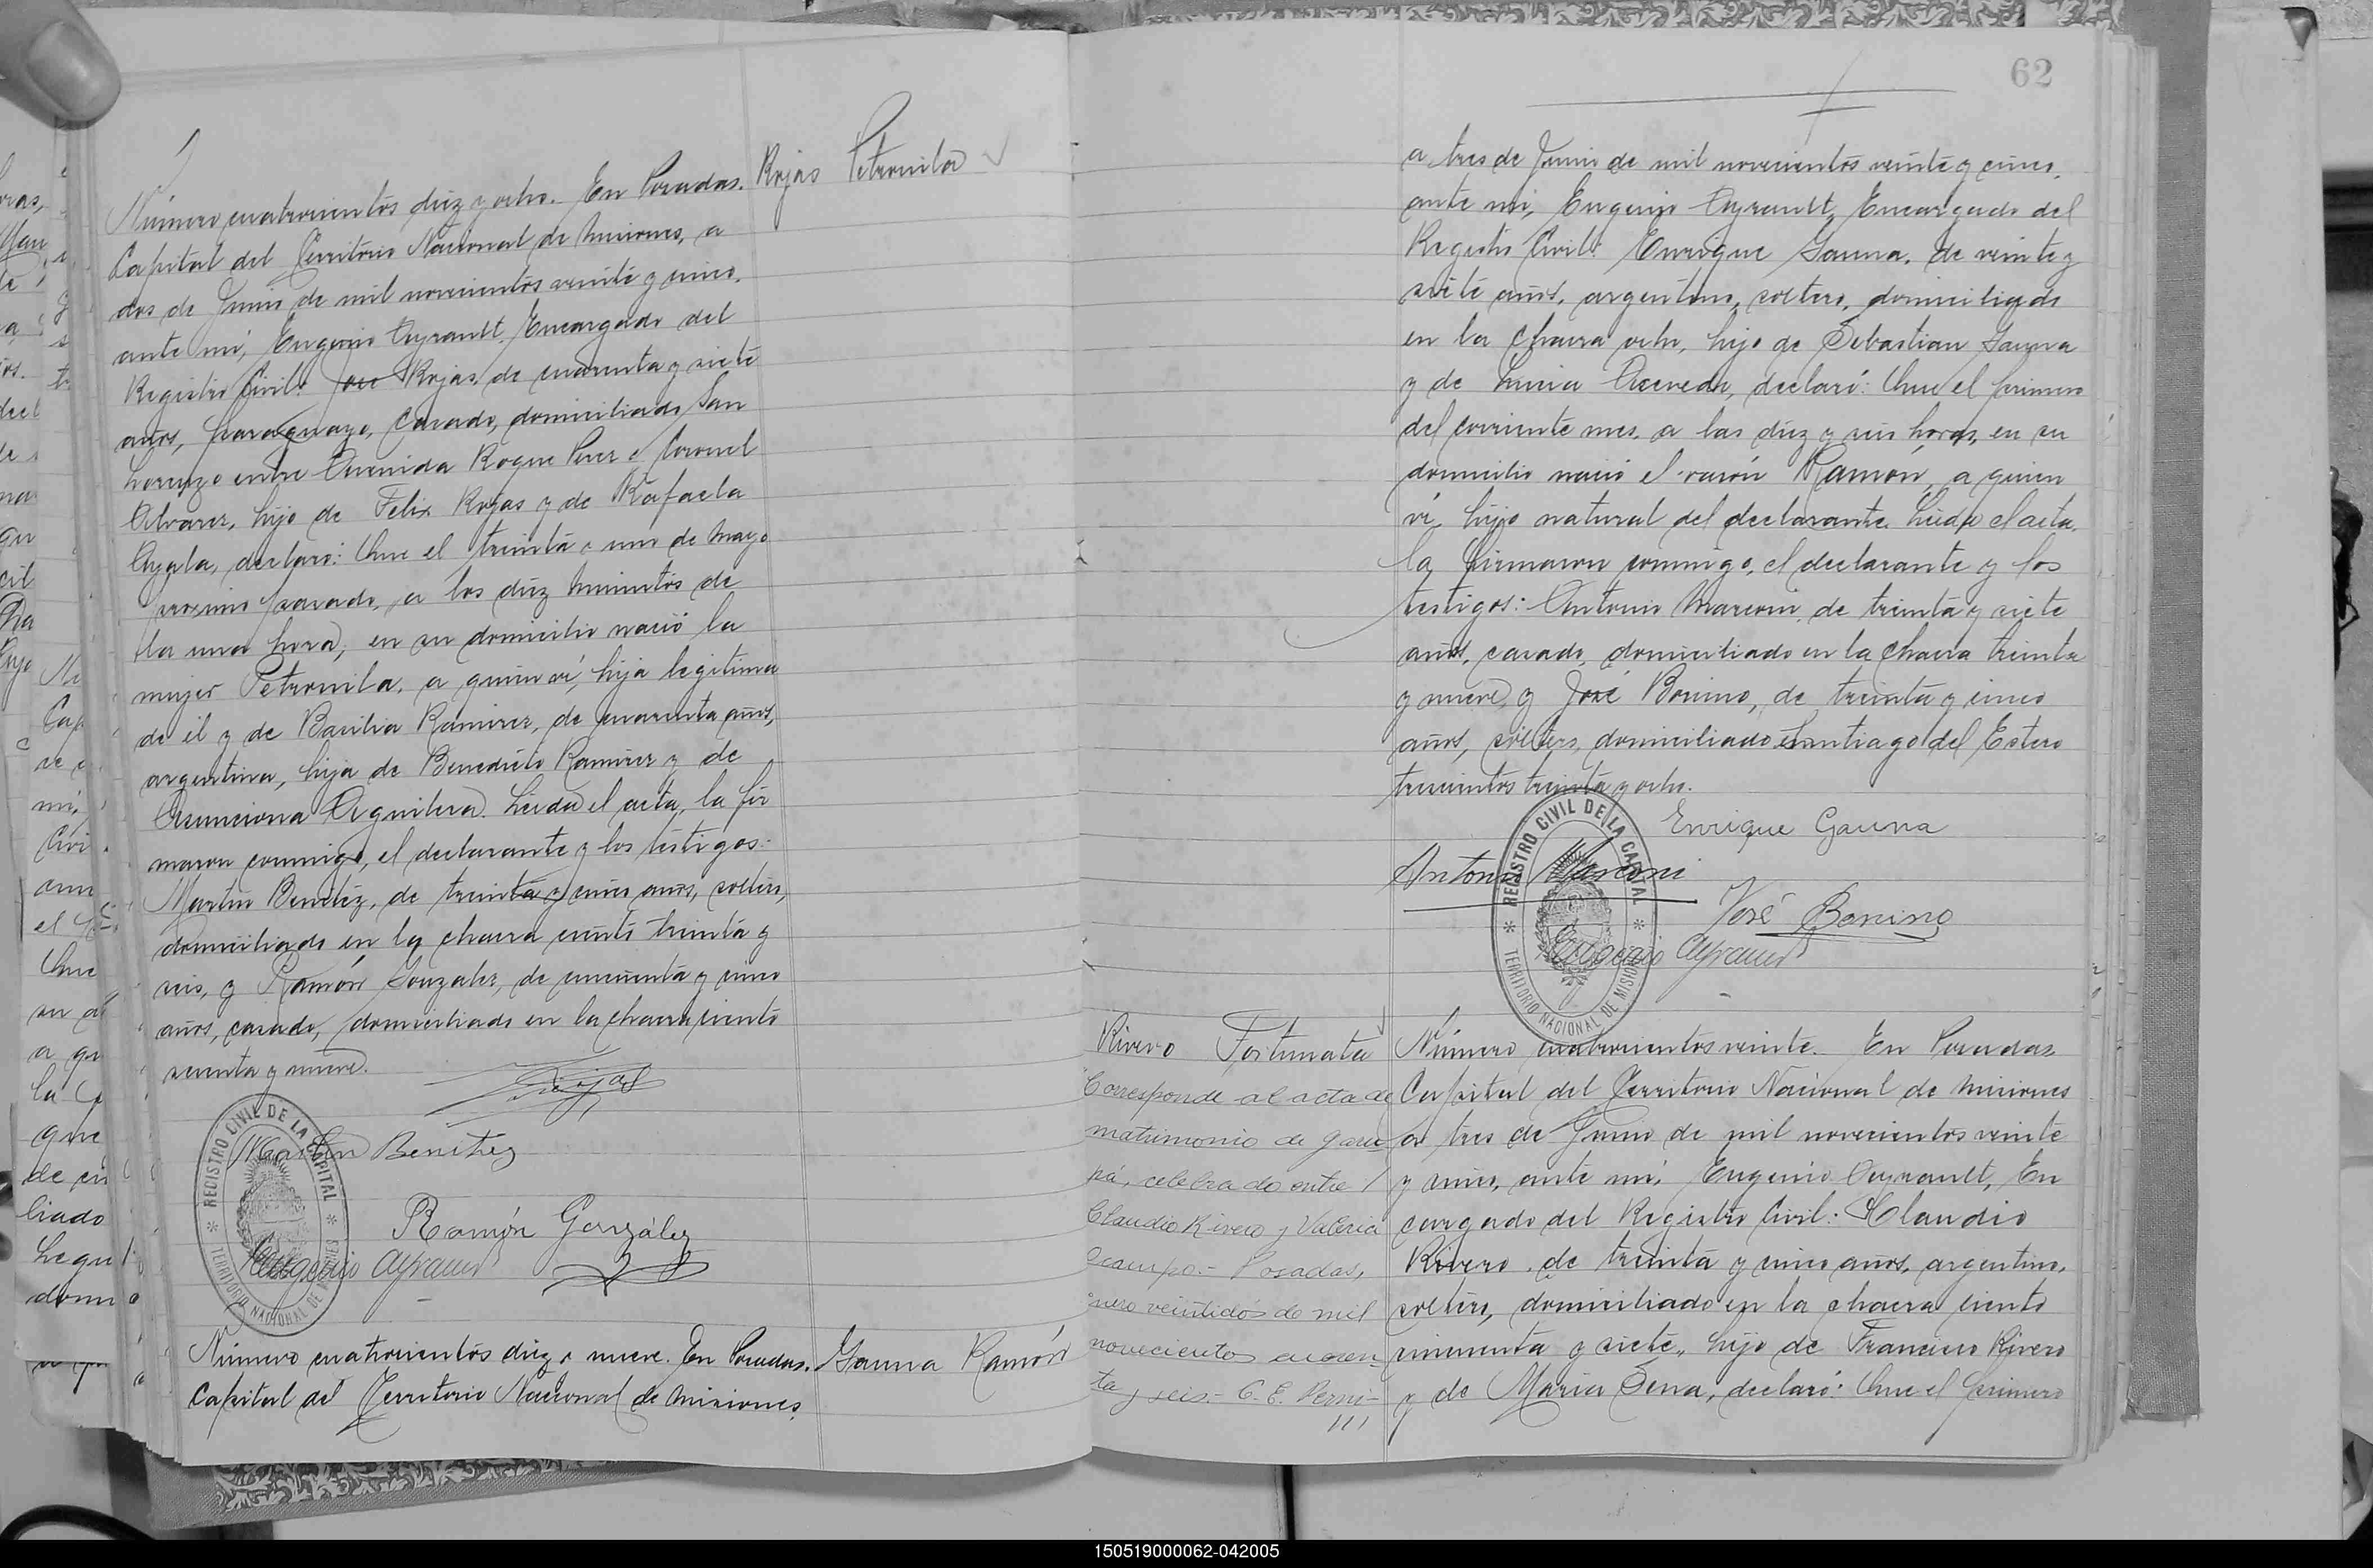 Rojas Petronila
Número cuatrocientos diez y ocho. En Posadas.
Capital del Territorio Nacional de Misiones, a
dos de Junio de mil novecientos veinte y cinco.
ante mí, Eugenio Ayrault, Encargado del
Registro Civil: José Rojas, de cuarenta y siete
años, paraguayo, casado, domiciliado San
Lorenzo entre Avenida Roque Perez y Coronel
Alvarez, hijo de Felix Rojas y de Rafaela
Ayala, declaró: Que el treinta y uno de Mayo
proximo pasado, a los diez minutos de
la una hora, en su domicilio nació la
mujer Petronila, a quien ví, hija legitima
de él y de Basilia Ramirez, de cuarenta años,
argentina, hija de Benedicto Ramirez y de
Asunciona Aguilera. Leida el acta, la fir
maron conmigo, el declarante y los testigos:
Martin Benitez, de treinta y cinco años, soltero,
domiciliado en la chacra ciento treinta y
seis, y Ramón Gonzalez, de cincuenta y cinco
años, casado, domiciliado en la chacra ciento
setenta y nueve.
Rojas
Martin Benitez
Ramón González
Eugenio Ayrault
REGISTRO CIVIL DE LA CAPITAL
TERRITORIO NACIONAL DE MISIONES
Gauna Ramón
Número cuatrocientos diez y nueve. En Posadas.
Capital del Territorio Nacional de Misiones,
62
a tres de Junio de mil novecientos veinte y cinco.
ante mí, Eugenio Ayrault, Encargado del
Registro Civil: Enrique Gauna, de veinte y
siete años, argentino, soltero, domiciliado
en la chacra ocho, hijo de Sebastian Gauna
y de Lucia Acevedo, declaró: Que el primero
del corriente mes, a las diez y seis horas, en su
domicilio nació el varón Ramón, a quien
ví, hijo natural del declarante. Leida el acta,
la firmaron conmigo, el declarante y los
testigos: Antonio Marconi, de treinta y siete
años, casado, domiciliado en la chacra treinta
y nueve, y José Bonino, de treinta y cinco
años, soltero, domiciliado Santiago del Estero
trescientos treinta y ocho.
Enrique Gauna
Antonio Marconi
José Bonino
Eugenio Ayrault
REGISTRO CIVIL DE LA CAPITAL
TERRITORIO NACIONAL DE MISIONES
Rivero Fortunata
Corresponde al acta de
matrimonio de Garu-
pá, celebrado entre
Claudio Rivero y Valeria
Ocampo.- Posadas,
enero veintidós de mil
novecientos cuaren-
ta y seis.- C. E.
Número cuatrocientos veinte. En Posadas
Capital del Territorio Nacional de Misiones
a tres de Junio de mil novecientos veinte
y cinco, ante mí, Eugenio Ayrault, En
cargado del Registro Civil: Claudio
Rivero, de treinta y cinco años, argentino,
soltero, domiciliado en la chacra ciento
cincuenta y siete, hijo de Francisco Rivero
y de Maria Sena, declaró: Que el primero
150519000062-042005